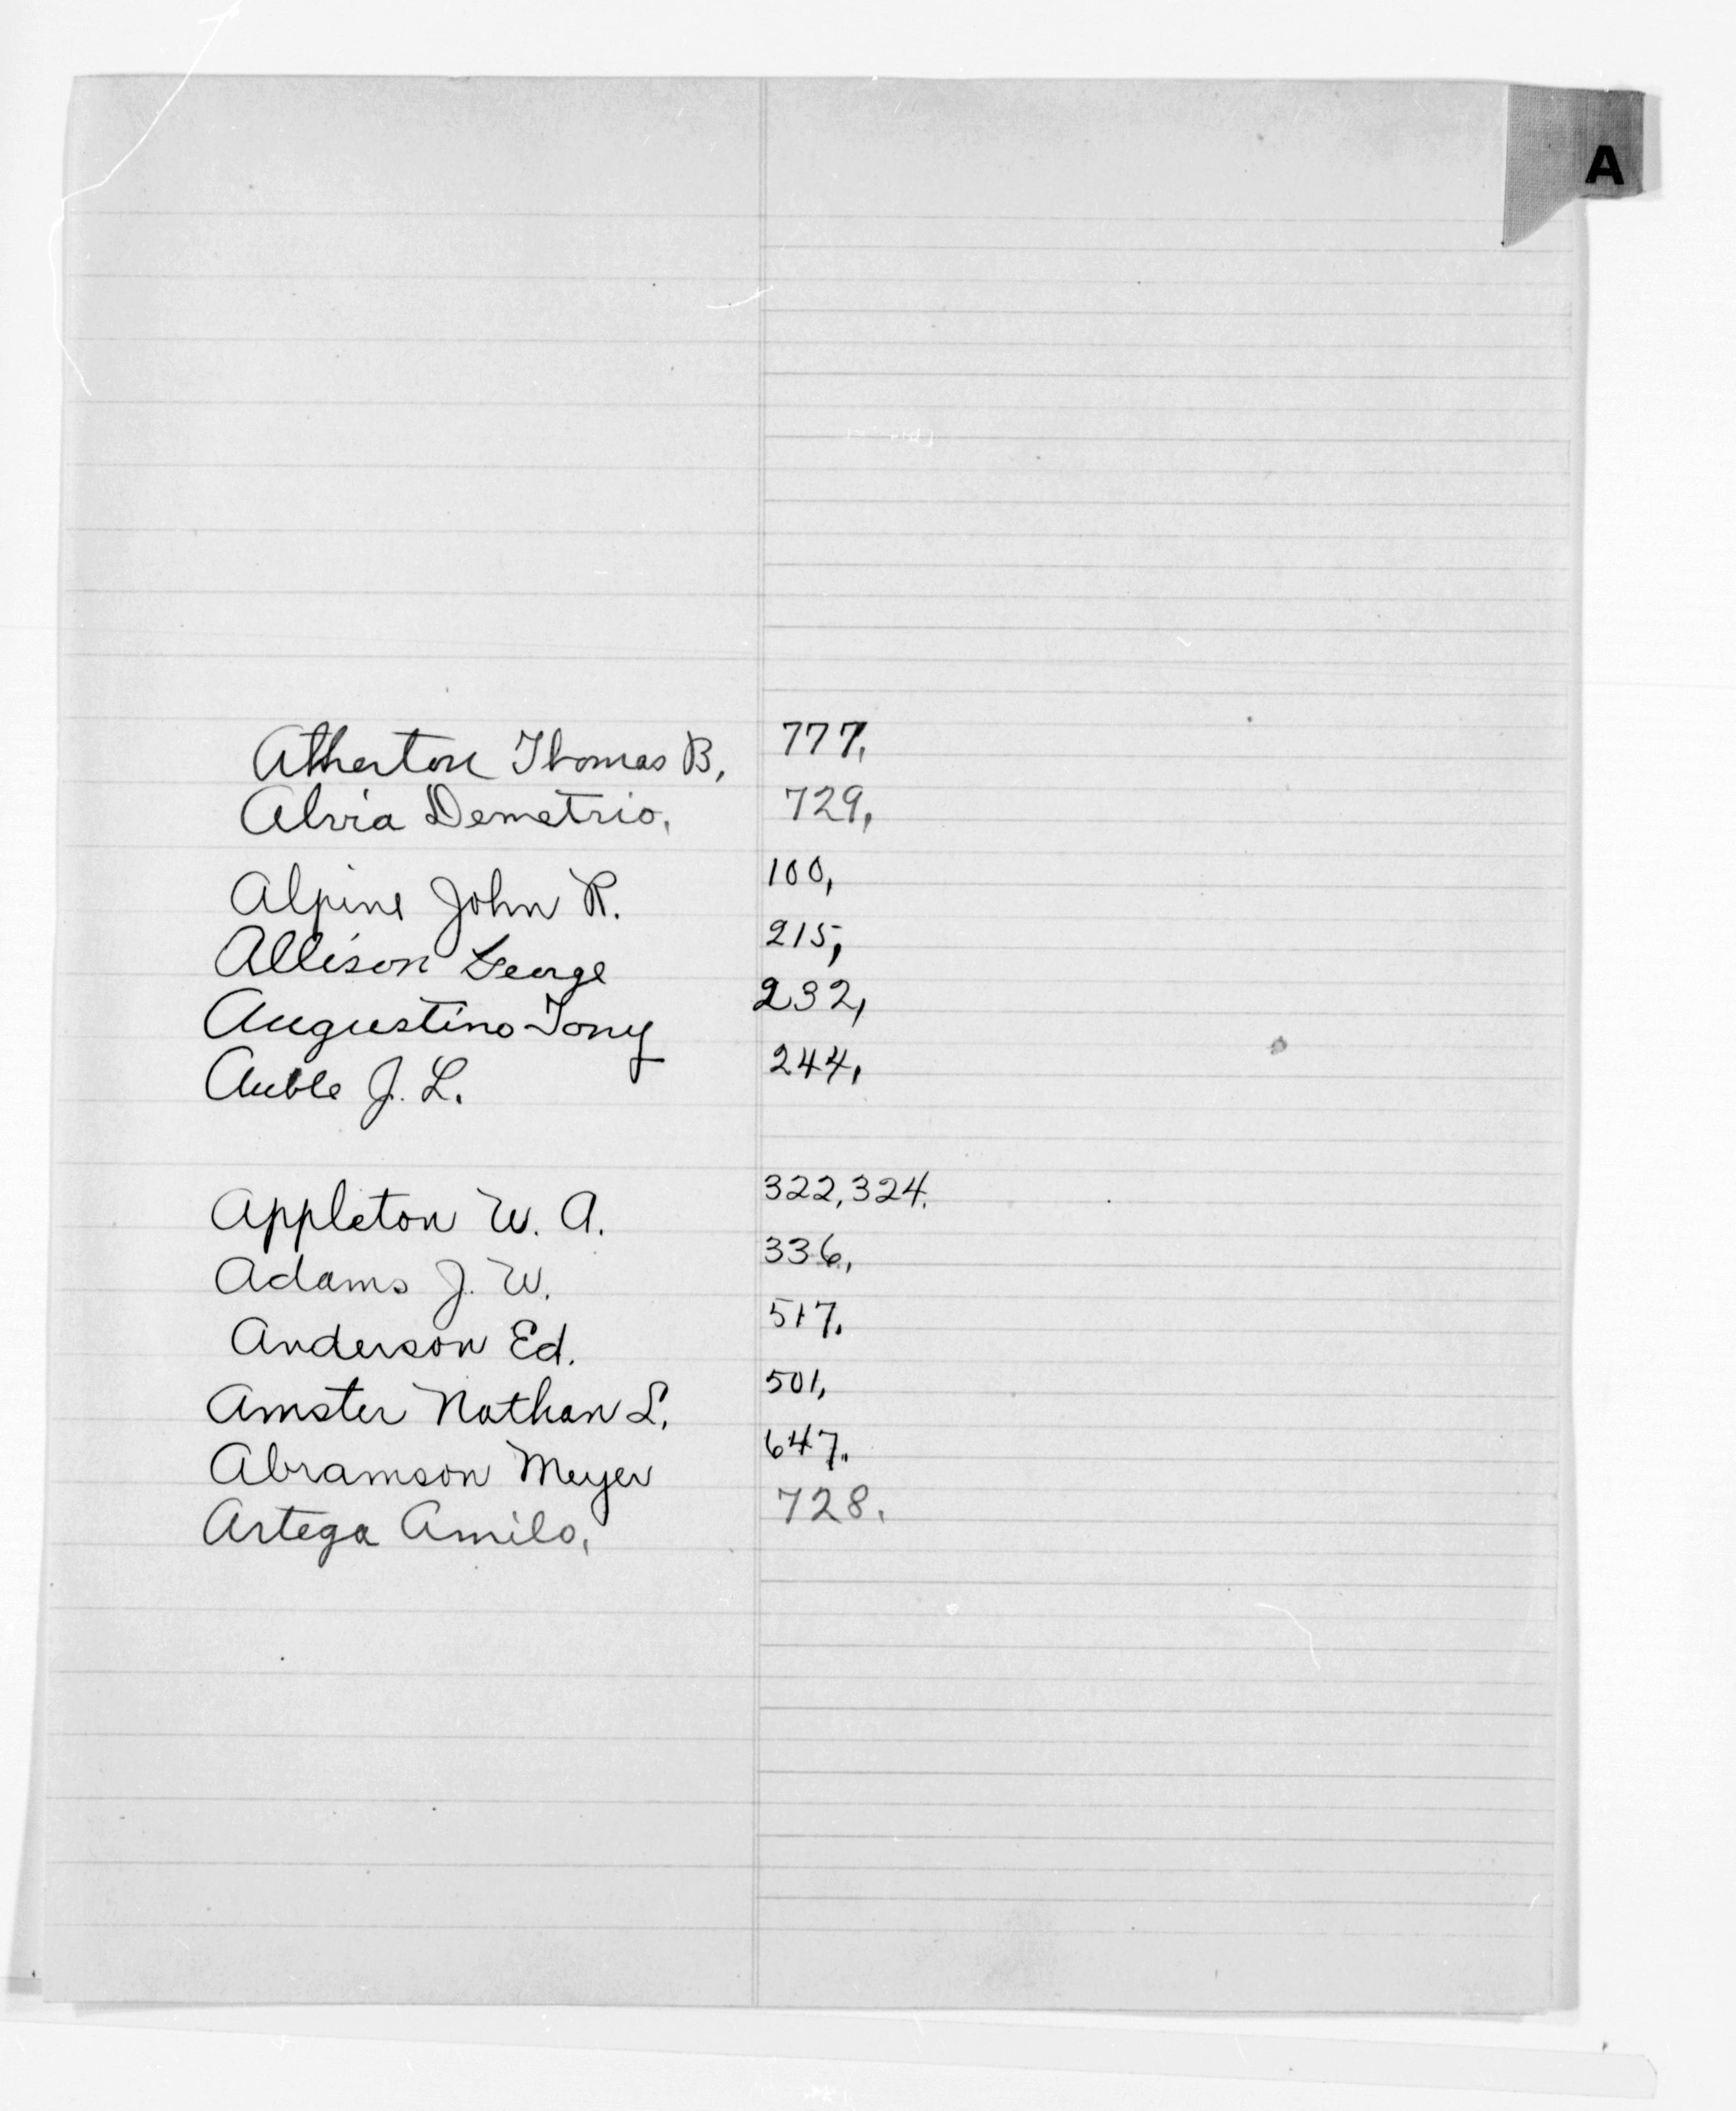 A
Atherton Thomas B, 777,
Alvia Demetrio, 729,
Alpine John R. 100,
Allison George 215,
Augustino Tony 232,
Auble J. L. 244,
Appleton W. A. 322, 324.
Adams J. W. 336,
Anderson Ed. 517.
Amster Nathan L. 501,
Abramson Meyer 647.
Artega Amilo, 728.